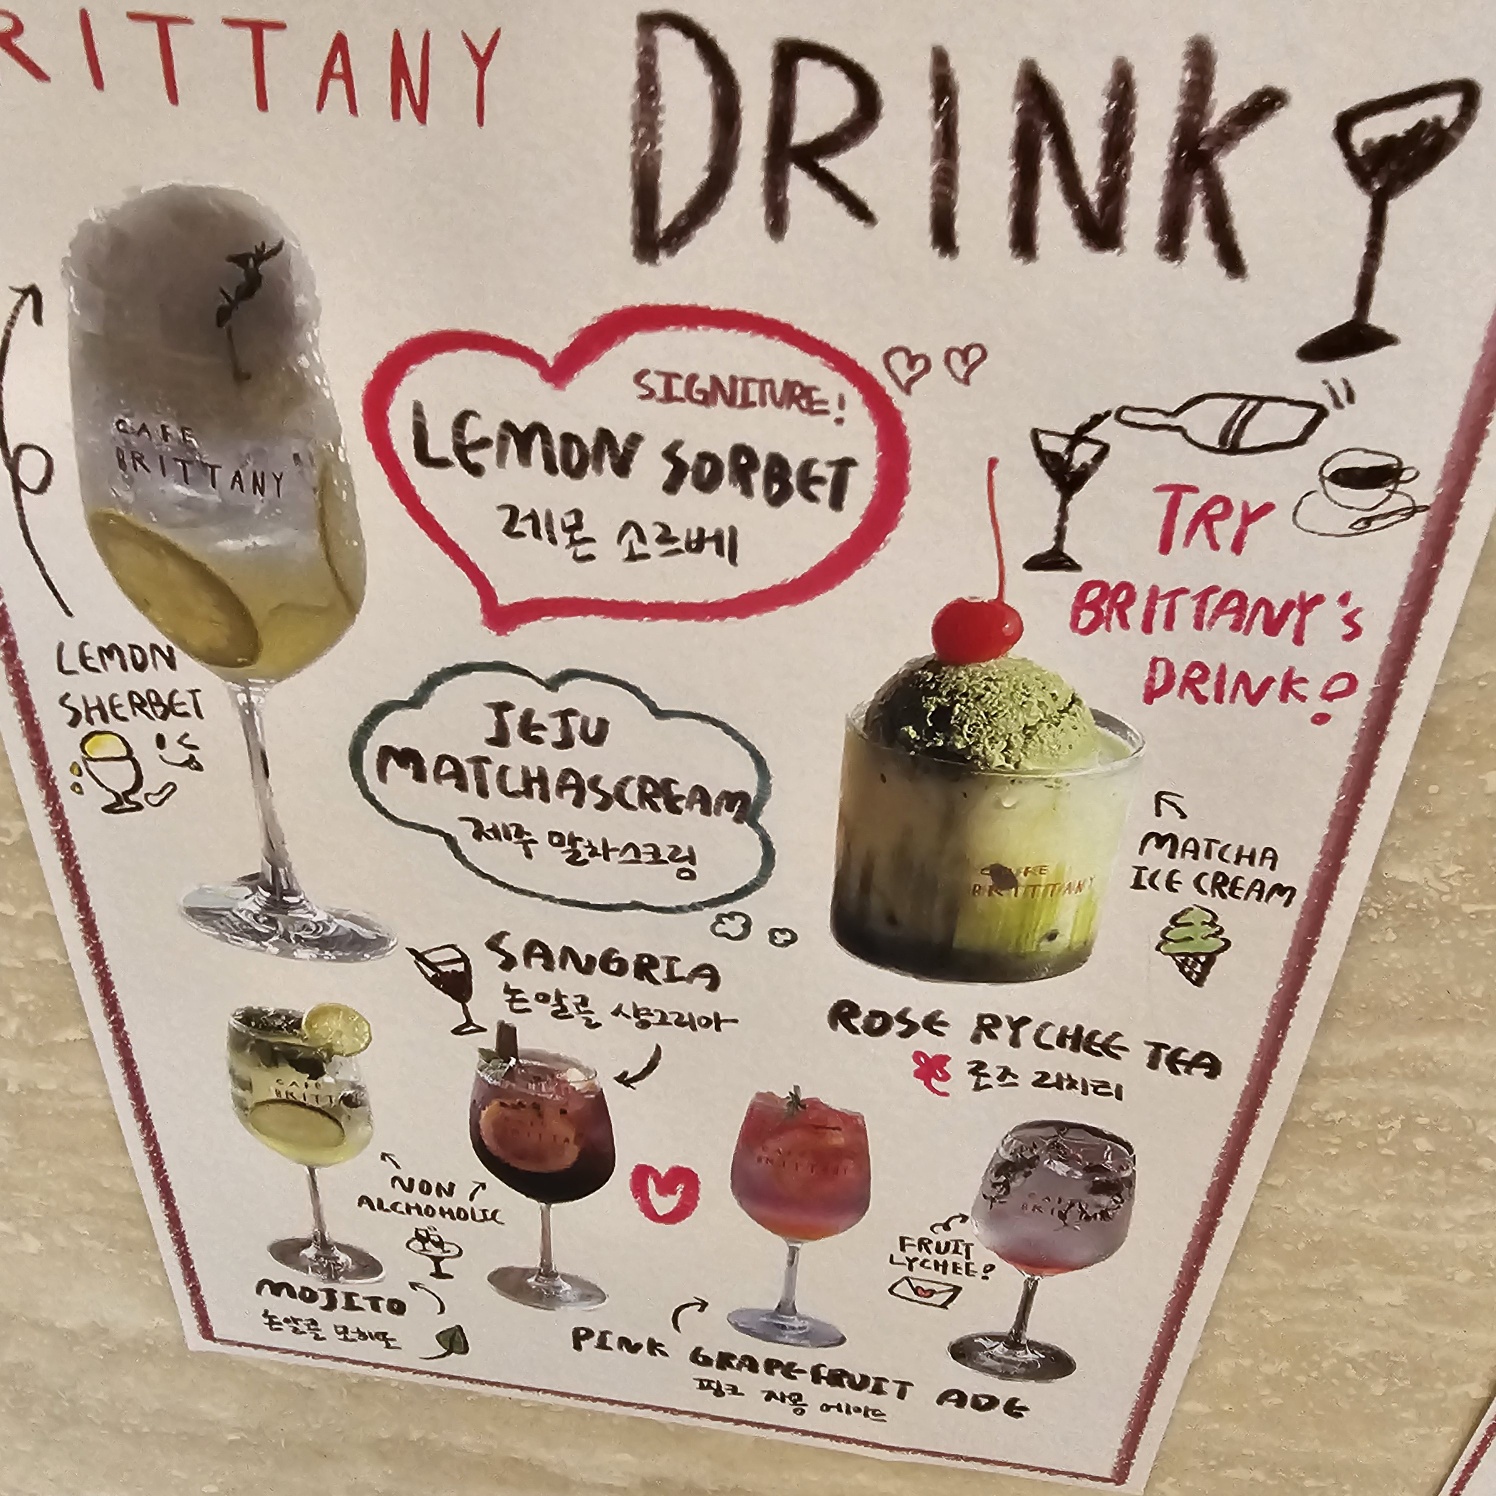 RITTANY
DRINK
CAFE
BRITTANY
SIGNITURE!
LEMON SORBET
레몬 소르베
TRY
BRITTANY's
DRINK?
LEMON
SHERBET
JEJU
MATCHASCREAM
제주 말차스크림
BRITTTANY
MATCHA
ICE CREAM
SANGRIA
논알콜 샹그리아
ROSE RYCHEE TEA
로즈 리치티
CAFE
BRITT
NON
ALCHOHOLIC
FRUIT
LYCHEE?
MOJITO
논알콜 모히또
PINK GRAPEFRUIT ADE
핑크 자몽 에이드